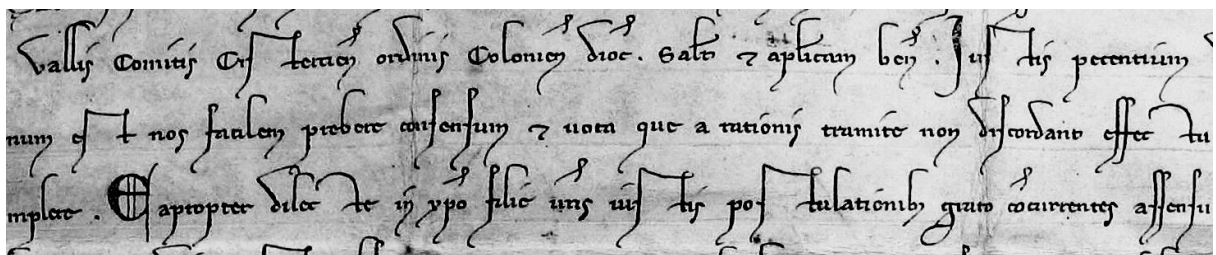 vallis Comitis Cistercien̄ ordinis Colonien̄ dioc̄. Salt̄ ⁊ apl̄icam ben̄. Iustis petentium
num est nos facilem prebere consensum ⁊ uota que a rationis tramite non discordant effectu
mplere. Eapropter dilecte in xp̄o filie ur̄is iustis postulationib; grato cōcurrentes assensu